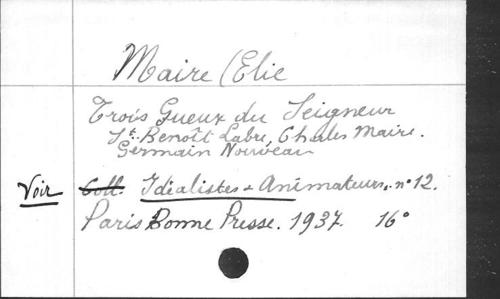 Maire (Elie
Trois Gueux du Seigneur
St. Benoît Labre, Charles Maire.
Germain Nouveau
Voir Coll. Idéalistes & Animateurs. n° 12.
Paris Bonne Presse. 1937. 16°